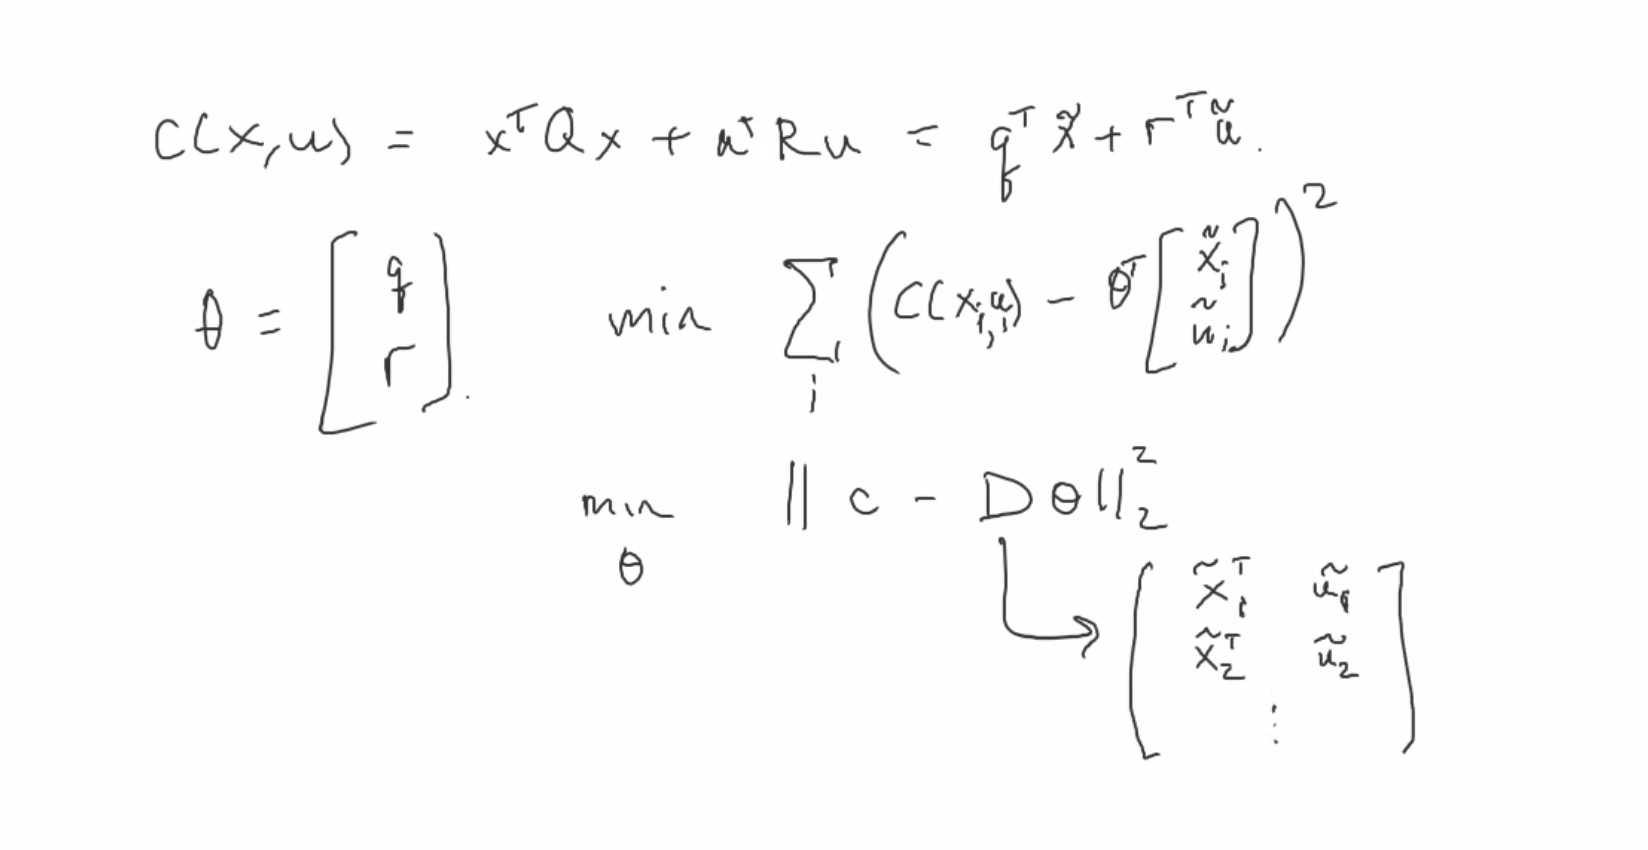 C(x,u) = xᵀQx + uᵀRu = qᵀx̃ + rᵀũ.
θ = [q r]. min Σᵢ (C(xᵢ,uᵢ) − θᵀ[x̃ᵢ ũᵢ])²
min θ ‖c − Dθ‖₂²
[x̃₁ᵀ ũ₁
x̃₂ᵀ ũ₂
⋮]